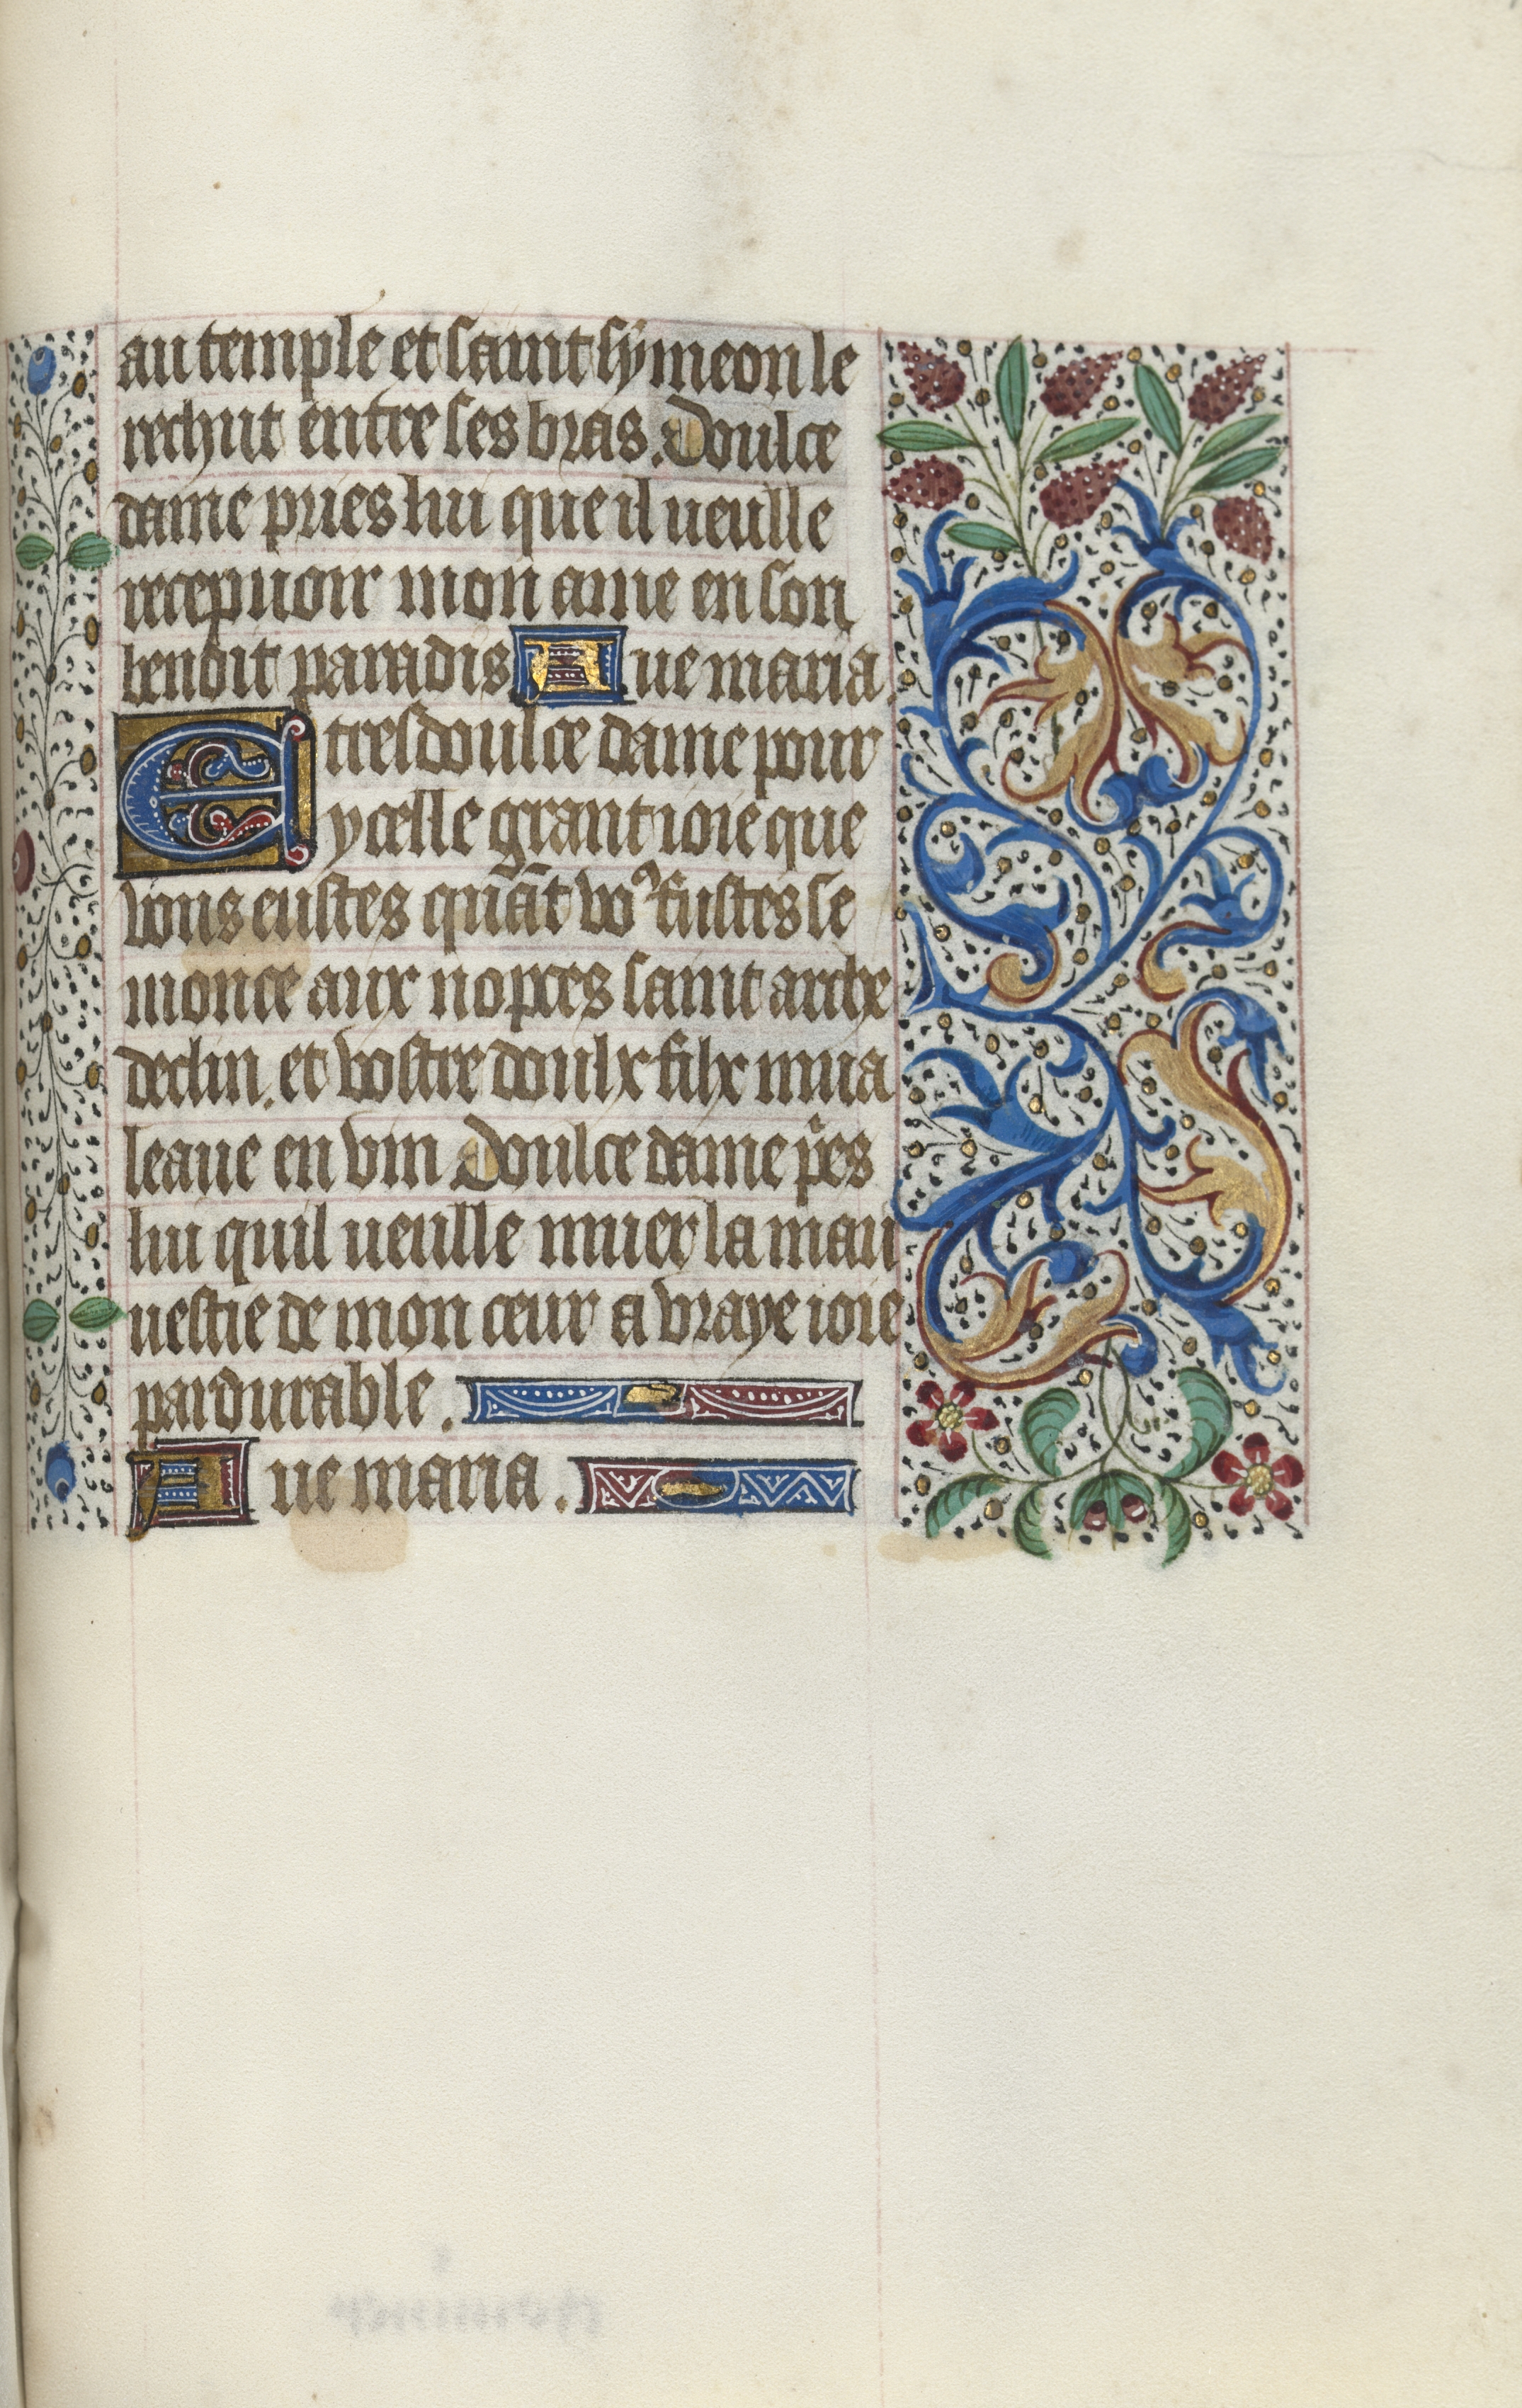 au temple et saint symeon le
rechut entre ses bras. Doulce
dame pries lui que il ueulle
recepuoir mon ame en son
benoit paradis Aue maria.
E tresdoulce dame pour
ycelle grant ioie que
vous eustes quãt voꝰ fustes se
monce aux nopces saint arche
declin. et vostre doulx filx mua
leaue en vin Doulce dame p̃es
lui quil ueulle muer la mau
uestie de mon cœur a vraye ioie
pardurable.
Aue maria.